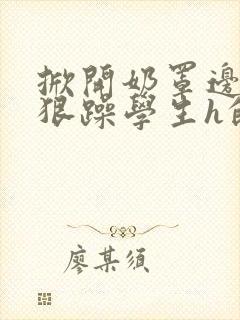 掀開奶罩邊
狠躁學生h
廖某須